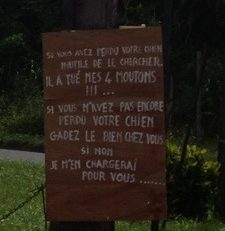 SI VOUS AVEZ PERDU VOTRE CHIEN
INUTILE DE LE CHERCHER.
IL A TUÉ MES 4 MOUTONS
!!! ...
SI VOUS N'AVEZ PAS ENCORE
PERDU VOTRE CHIEN
GADEZ LE BIEN CHEZ VOUS
SI NON
JE M'EN CHARGERAI
POUR VOUS .......